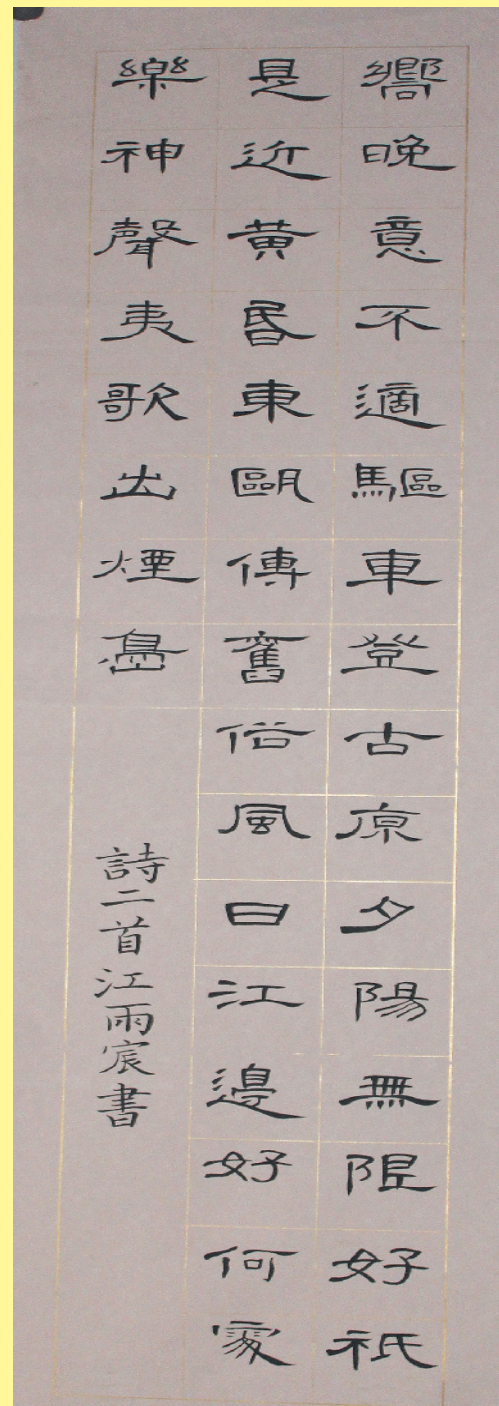 嚮晚意不適驅車登古原夕陽無限好祇
是近黃昏東甌傳舊俗風日江邊好何處
樂神聲夷歌出煙島
詩二首江雨宸書